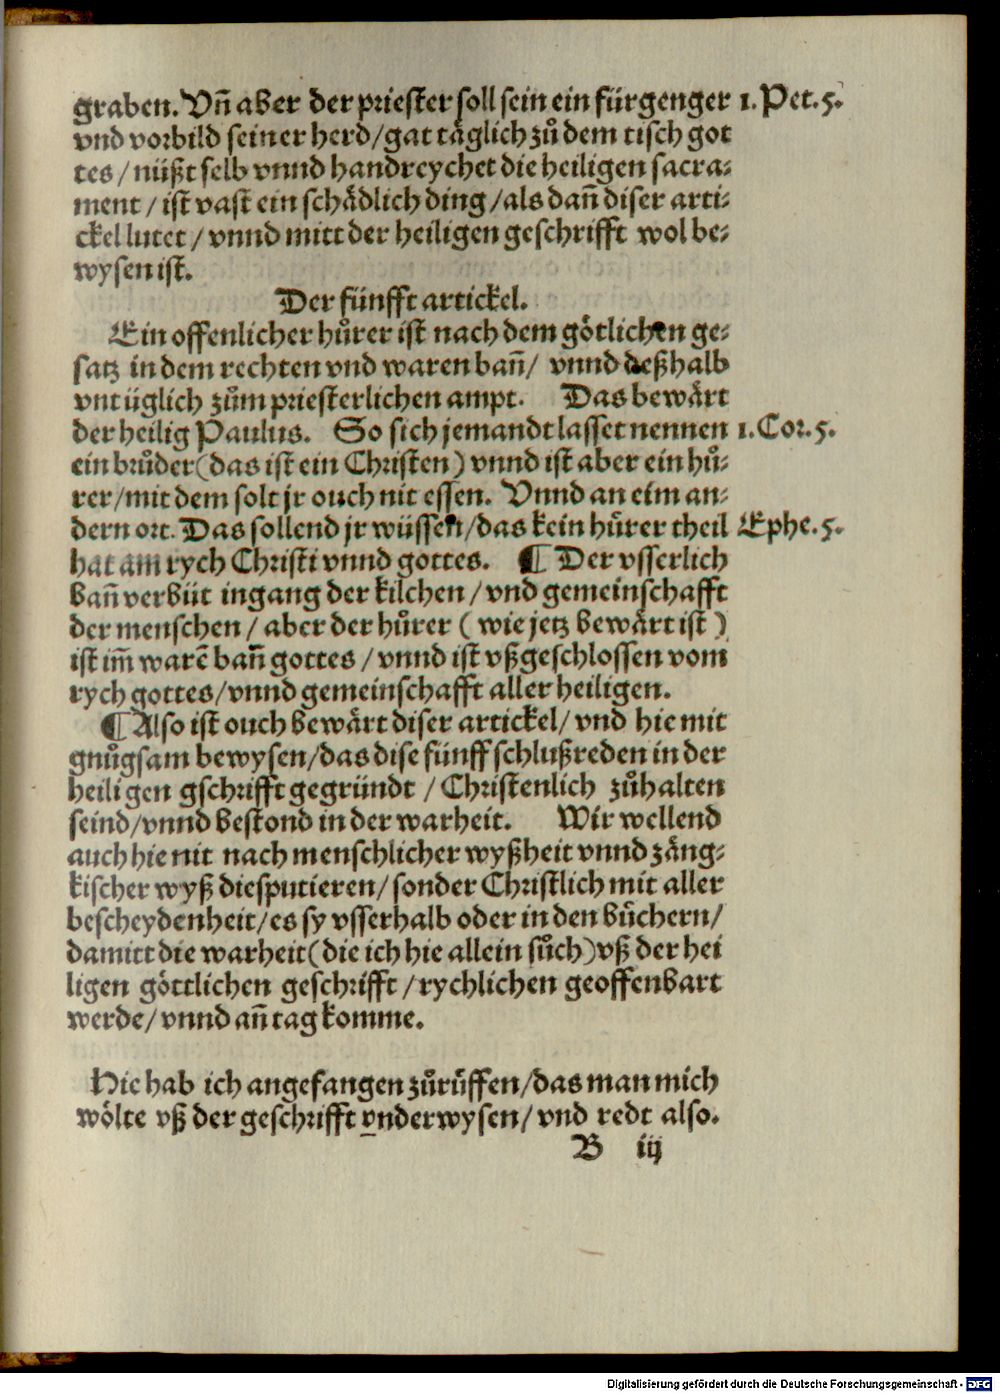 graben. Vñ aber der priester soll sein ein fürgenger 1. Pet. 5.
vnd vorbild seiner herd/gat täglich zů dem tisch got
tes/nüßt selb vnnd handreychet die heiligen sacra⸗
ment/ist vast ein schädlich ding/als dañ diser arti⸗
ckel lutet/vnnd mitt der heiligen geschrifft wol be⸗
wysen ist.
Der fünfft artickel.
Ein offenlicher hůrer ist nach dem götlichen ge⸗
satz in dem rechten vnd waren bañ/ vnnd deßhalb
vntüglich zům priesterlichen ampt. Das bewärt
der heilig Paulus. So sich jemandt lasset nennen 1. Cor. 5.
ein brůder(das ist ein Christen) vnnd ist aber ein hů⸗
rer/mit dem solt jr ouch nit essen. Vnnd an eim an⸗
dern ort. Das sollend jr wüssen/das kein hůrer theil Ephe. 5.
hat am rych Christi vnnd gottes. ¶ Der vsserlich
bañ verbüt ingang der kilchen/vnd gemeinschafft
der menschen/aber der hůrer (wie jetz bewärt ist)
ist im̃ warẽ bañ gottes/vnnd ist vßgeschlossen vom
rych gottes/vnnd gemeinschafft aller heiligen.
¶ Also ist ouch bewärt diser artickel/vnd hie mit
gnůgsam bewysen/das dise fünff schlußreden in der
heiligen gschrifft gegründt/Christenlich zůhalten
seind/vnnd bestond in der warheit. Wir wellend
auch hie nit nach menschlicher wyßheit vnnd zäng⸗
kischer wyß diesputieren/sonder Christlich mit aller
bescheydenheit/es sy vsserhalb oder in den bůchern/
damitt die warheit(die ich hie allein sůch)vß der hei
ligen göttlichen geschrifft/rychlichen geoffenbart
werde/vnnd añ tag komme.
Hie hab ich angefangen zůrůffen/das man mich
wölte vß der geschrifft vnderwysen/vnd redt also.
B iij
Digitalisierung gefördert durch die Deutsche Forschungsgemeinschaft - DFG